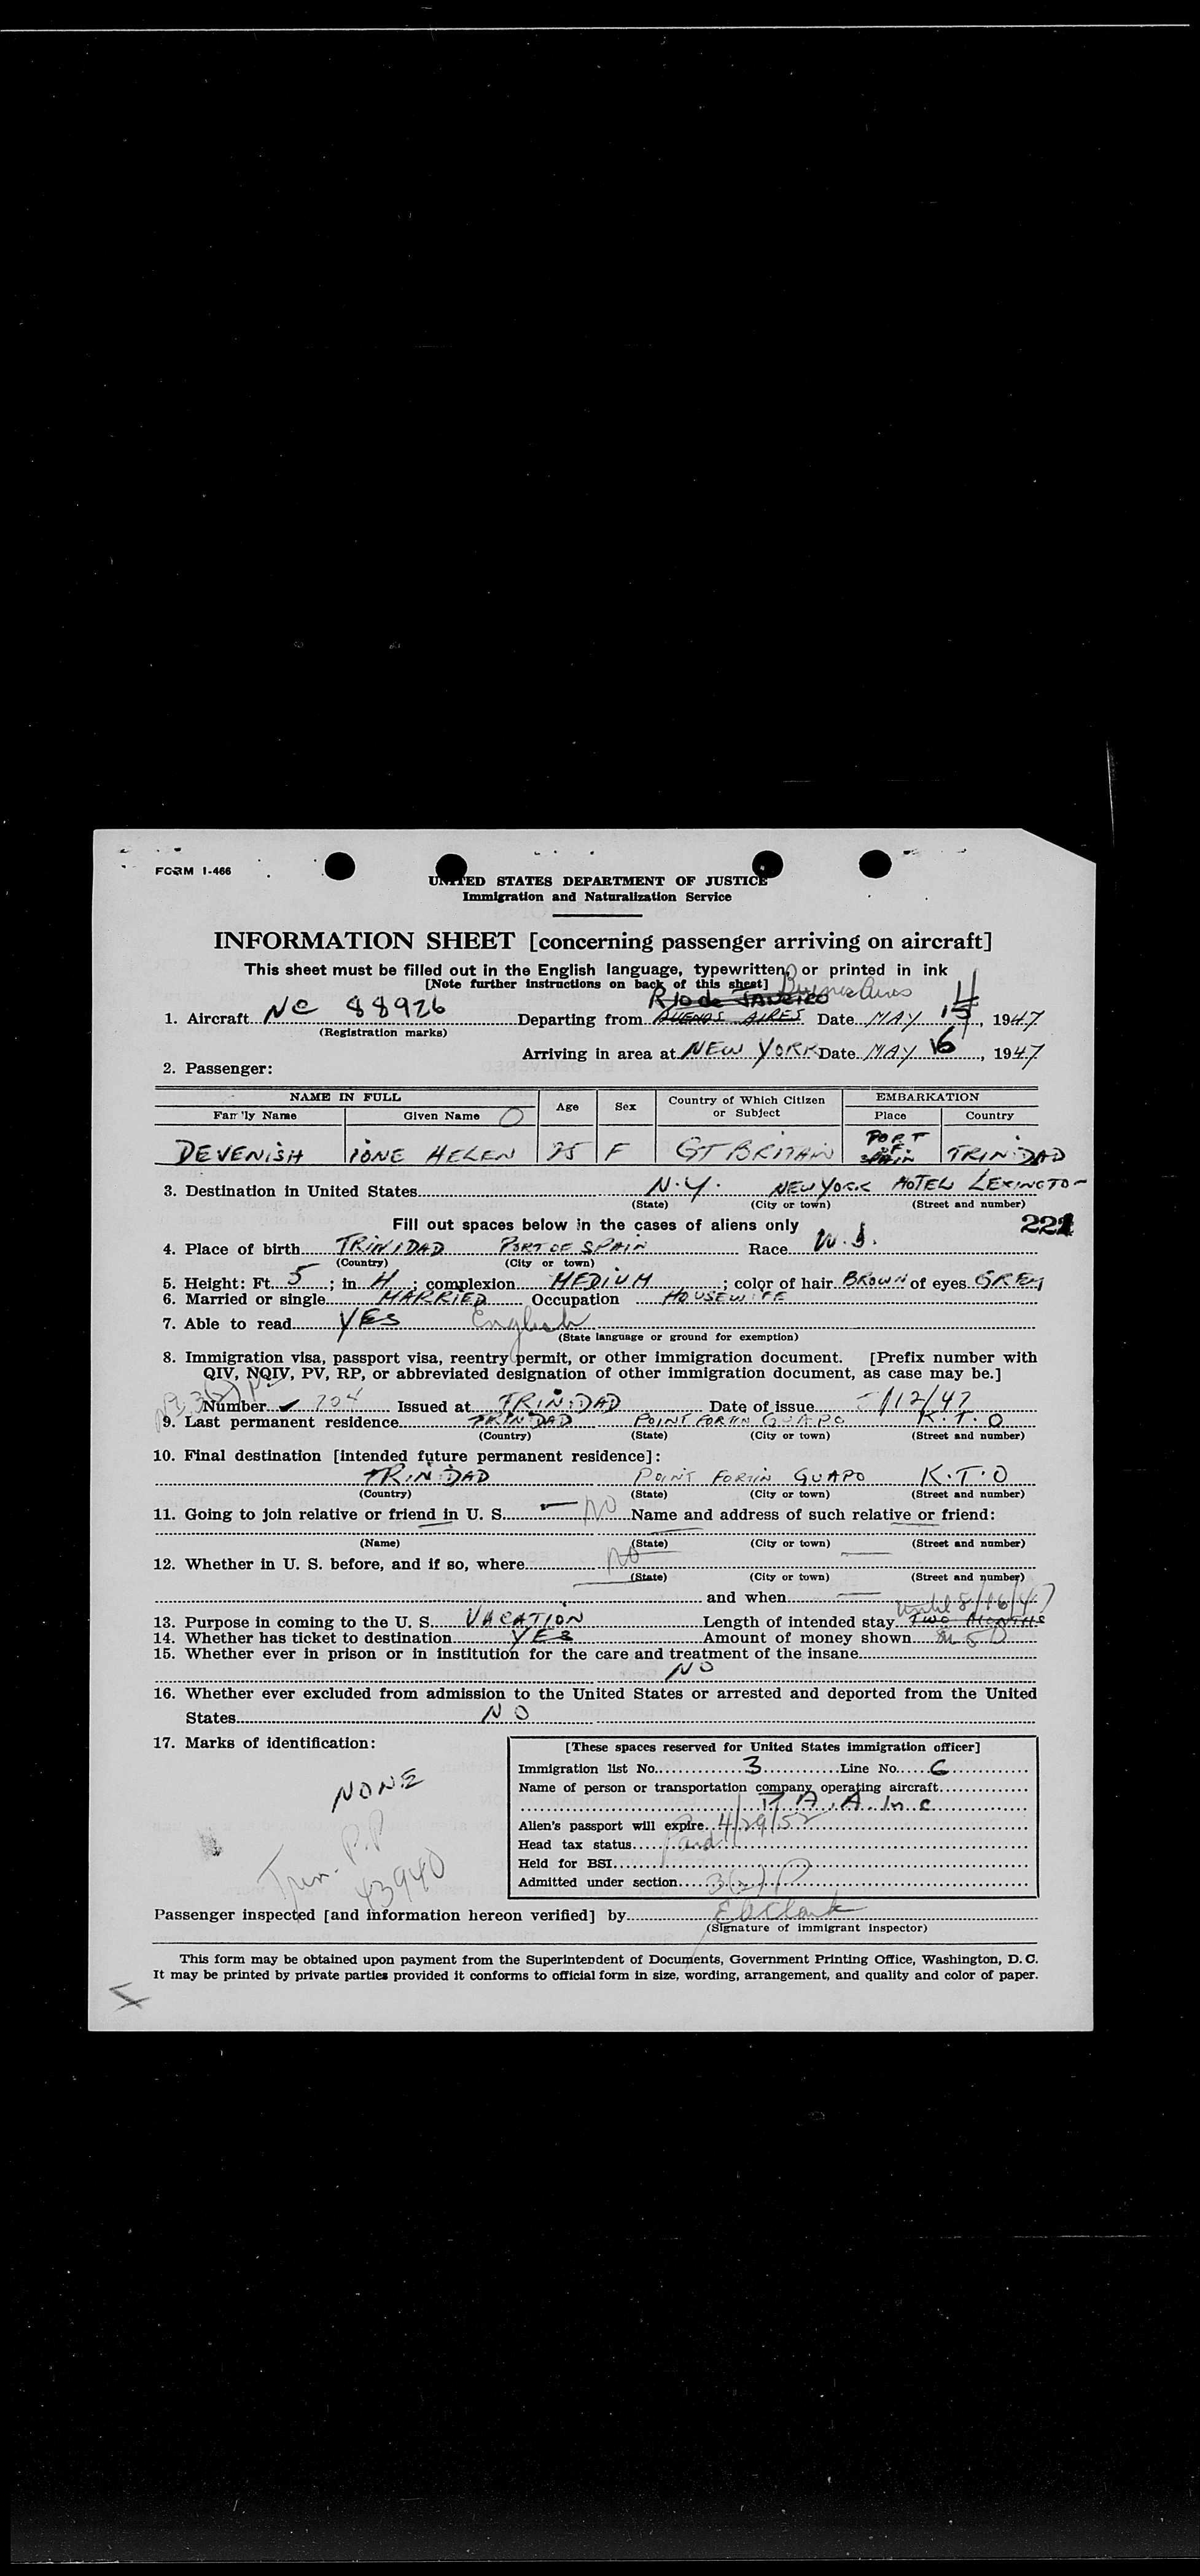 FORM I-466
UNITED STATES DEPARTMENT OF JUSTICE
Immigration and Naturalization Service
INFORMATION SHEET [concerning passenger arriving on aircraft]
This sheet must be filled out in the English language, typewritten, or printed in ink
[Note further instructions on back of this sheet]
Rio de Janeiro Buenos Aires 4
1. Aircraft NC 88926 Departing from BUENOS AIRES Date MAY 15, 1947
(Registration marks)
Arriving in area at NEW YORK Date MAY 16, 1947
2. Passenger:
NAME IN FULL Age Sex Country of Which Citizen or Subject EMBARKATION
Family Name Given Name Place Country
DEVENISH IONE HELEN 25 F GT BRITAIN PORT OF SPAIN TRINIDAD
3. Destination in United States N.Y. NEW YORK HOTEL LEXINGTON
(State) (City or town) (Street and number)
Fill out spaces below in the cases of aliens only 221
4. Place of birth TRINIDAD PORT OF SPAIN Race W.I.
(Country) (City or town)
5. Height: Ft. 5; in. 4; complexion MEDIUM; color of hair BROWN of eyes GREY
6. Married or single MARRIED Occupation HOUSEWIFE
7. Able to read YES English
(State language or ground for exemption)
8. Immigration visa, passport visa, reentry permit, or other immigration document. [Prefix number with
QIV, NQIV, PV, RP, or abbreviated designation of other immigration document, as case may be.]
Number 704 Issued at TRINIDAD Date of issue 5/12/47
9. Last permanent residence TRINIDAD POINT FORTIN GUAPO K.T.O
(Country) (State) (City or town) (Street and number)
10. Final destination [intended future permanent residence]:
TRINIDAD POINT FORTIN GUAPO K.T.O
(Country) (State) (City or town) (Street and number)
11. Going to join relative or friend in U. S. — NO Name and address of such relative or friend:
(Name) (State) (City or town) (Street and number)
12. Whether in U. S. before, and if so, where NO
(State) (City or town) (Street and number)
and when — until 8/16/47
13. Purpose in coming to the U. S. VACATION Length of intended stay TWO MONTHS
14. Whether has ticket to destination YES Amount of money shown 50
15. Whether ever in prison or in institution for the care and treatment of the insane
NO
16. Whether ever excluded from admission to the United States or arrested and deported from the United
States NO
17. Marks of identification:
NONE
Trin. P.P
43940
[These spaces reserved for United States immigration officer]
Immigration list No. 3 Line No. 6
Name of person or transportation company operating aircraft
P.A.A. Inc
Alien's passport will expire 4/29/52
Head tax status Paid
Held for BSI
Admitted under section 3(2)
Passenger inspected [and information hereon verified] by E Clark
(Signature of immigrant inspector)
This form may be obtained upon payment from the Superintendent of Documents, Government Printing Office, Washington, D. C.
It may be printed by private parties provided it conforms to official form in size, wording, arrangement, and quality and color of paper.
X